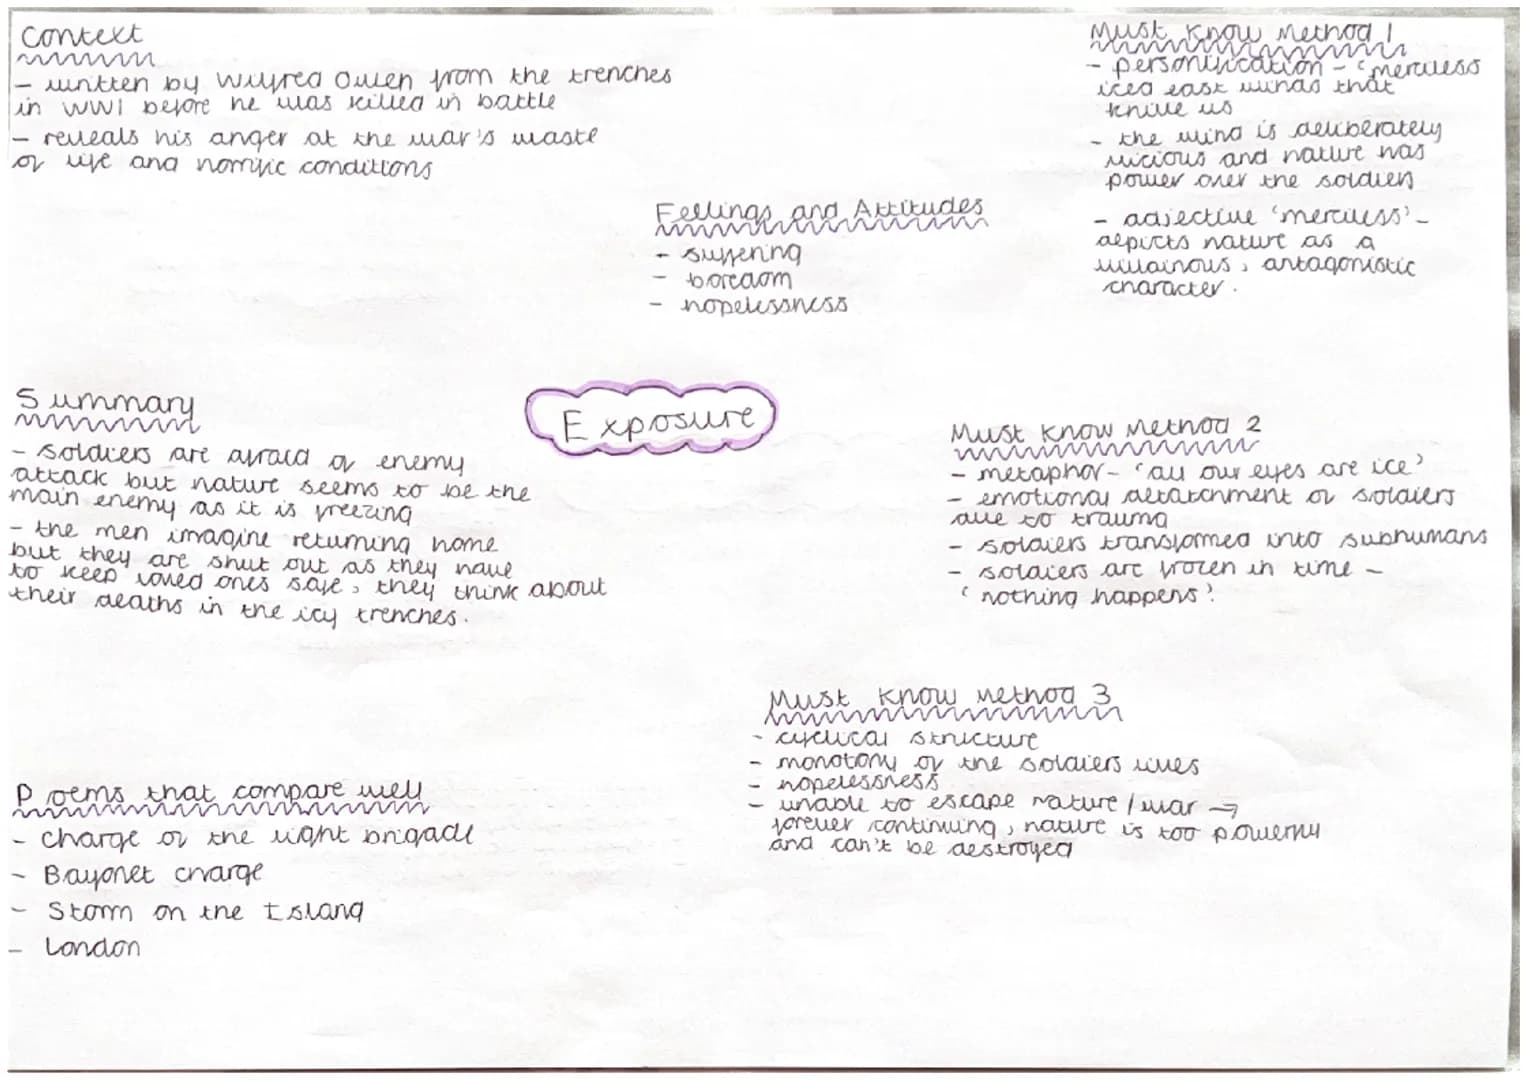 Context
- written by Wilfred Owen from the trenches
in WW1 before he was killed in battle
- reveals his anger at the war's waste
of life and horrific conditions
Must Know Method 1
- personification - 'merciless
iced east winds that
knive us
- the wind is deliberately
vicious and nature has
power over the soldiers
- adjective 'merciless' -
depicts nature as a
villainous, antagonistic
character.
Feelings and Attitudes
- suffering
- boredom
- hopelessness
Exposure
Summary
- soldiers are afraid of enemy
attack but nature seems to be the
main enemy as it is freezing
- the men imagine returning home
but they are shut out as they have
to keep loved ones safe, they think about
their deaths in the icy trenches.
Must Know Method 2
- metaphor - 'all our eyes are ice'
- emotional detatchment of soldiers
due to trauma
- soldiers transformed into subhumans
- soldiers are frozen in time -
'nothing happens'.
Must Know Method 3
- cyclical structure
- monotony of the soldiers lives
- hopelessness
- unable to escape nature / war →
forever continuing, nature is too powerful
and can't be destroyed
Poems that compare well
- Charge of the light brigade
- Bayonet charge
- Storm on the Island
- London